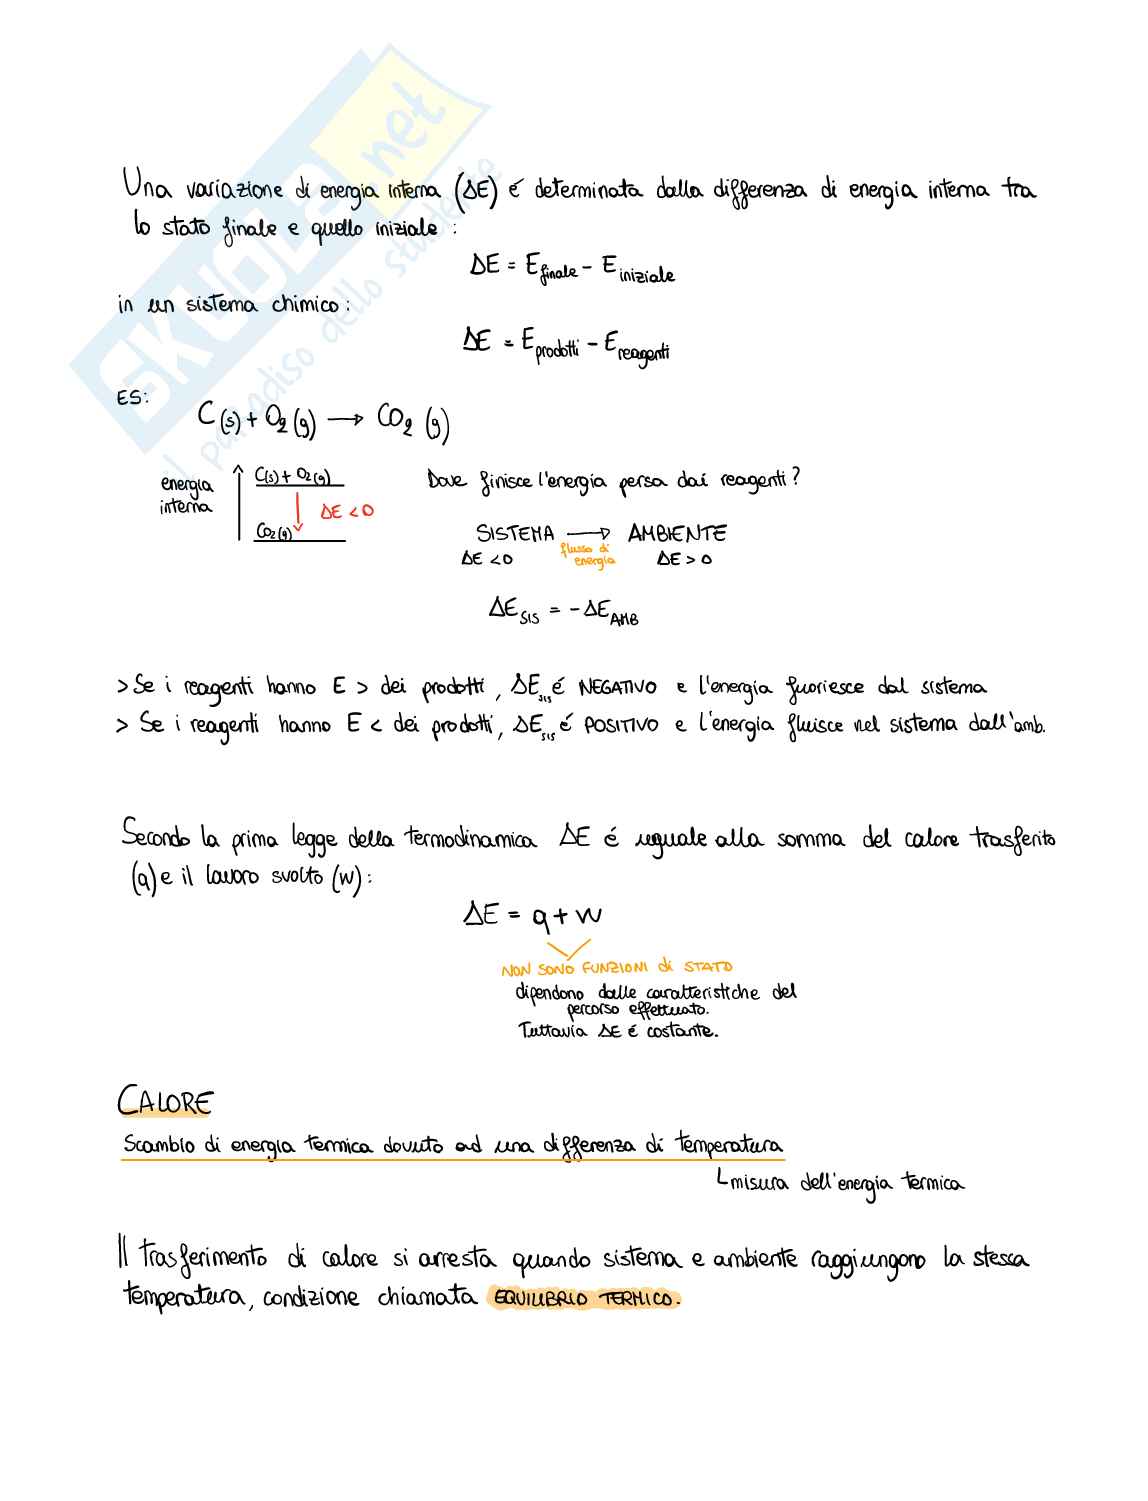 SKUOLA.net
il paradiso dello studente
Una variazione di energia interna (ΔE) é determinata dalla differenza di energia interna tra
lo stato finale e quello iniziale :
ΔE = E finale - E iniziale
in un sistema chimico:
ΔE = E prodotti - E reagenti
ES:
C(s) + O2(g) → CO2(g)
energia
interna
C(s) + O2(g)
ΔE < 0
CO2(g)
Dove finisce l'energia persa dai reagenti?
SISTEMA → AMBIENTE
flusso di
energia
ΔE < 0
ΔE > 0
ΔE SIS = - ΔE AMB
> Se i reagenti hanno E > dei prodotti, ΔE sis é NEGATIVO e l'energia fuoriesce dal sistema
> Se i reagenti hanno E < dei prodotti, ΔE sis é POSITIVO e l'energia fluisce nel sistema dall'amb.
Secondo la prima legge della termodinamica ΔE é uguale alla somma del calore trasferito
(q) e il lavoro svolto (w):
ΔE = q + w
NON SONO FUNZIONI di STATO
dipendono dalle caratteristiche del
percorso effettuato.
Tuttavia ΔE é costante.
CALORE
Scambio di energia termica dovuto ad una differenza di temperatura
misura dell'energia termica
Il trasferimento di calore si arresta quando sistema e ambiente raggiungono la stessa
temperatura, condizione chiamata EQUILIBRIO TERMICO.